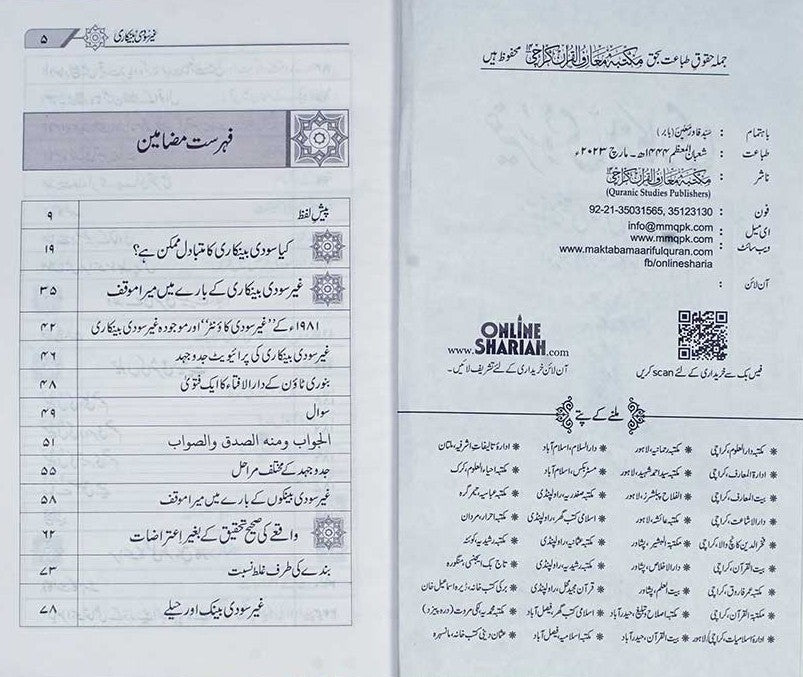 جملہ حقوق طباعت بحق مکتبہ معارف القرآن کراچی محفوظ ہیں
باہتمام : سید قادر معین (بابر)
طباعت : شعبان المعظم ۱۴۴۴ھ۔ مارچ ۲۰۲۳ء
ناشر : مکتبہ معارف القرآن کراچی
(Quranic Studies Publishers)
فون : 92-21-35031565, 35123130
ای میل : info@mmqpk.com
ویب سائٹ : www.mmqpk.com
www.maktabamaarifulquran.com
آن لائن : fb/onlinesharia
ONLINE
SHARIAH
www. .com
فیس بک سے خریداری کے لئے scan کریں
آن لائن خریداری کے لئے تشریف لائیں۔
ملنے کے پتے
مکتبہ دار العلوم، کراچی ٭ مکتبہ رحمانیہ، لاہور ٭ دار السلام، اسلام آباد ٭ ادارۂ تالیفات اشرفیہ، ملتان ٭
ادارۃ المعارف، کراچی ٭ مکتبہ سید احمد شہید، لاہور ٭ مسٹر بکس، اسلام آباد ٭ مکتبہ احیاء العلوم، کرک ٭
بیت المعارف، کراچی ٭ الفلاح پبلشرز، لاہور ٭ مکتبہ صفدریہ، راولپنڈی ٭ مکتبہ عباسیہ، تیمرگرہ ٭
دار الاشاعت، کراچی ٭ مکتبہ عائشہ، لاہور ٭ اسلامی کتب گھر، راولپنڈی ٭ مکتبہ احرار، مردان ٭
فخر الدین کالج والا، کراچی ٭ مکتبۃ البشیر، پشاور ٭ مکتبہ عثمانیہ، راولپنڈی ٭ مکتبہ رشیدیہ، کوئٹہ ٭
بیت القرآن، کراچی ٭ دار الاخلاص، پشاور ٭ مکتبہ رشیدیہ، راولپنڈی ٭ تاج بک ایجنسی، منگورہ ٭
مکتبہ عمر فاروق، کراچی ٭ بیت العلم، پشاور ٭ قرآن محل، راولپنڈی ٭ برکی کتب خانہ، ڈیرہ اسماعیل خان ٭
مکتبۃ القرآن، کراچی ٭ مکتبہ اصلاح و تبلیغ، حیدرآباد ٭ اسلامی کتب گھر، فیصل آباد ٭ مکتبہ محمدیہ، لکی مروت (درہ پیزو) ٭
ادارۂ اسلامیات، کراچی/لاہور ٭ بیت القرآن، حیدرآباد ٭ مکتبہ اسلامیہ، فیصل آباد ٭ عثمان دینی کتب خانہ، مانسہرہ ٭
غیر سودی بینکاری ۵
فہرست مضامین
پیش لفظ ۹
کیا سودی بینکاری کا متبادل ممکن ہے؟ ۱۹
غیر سودی بینکاری کے بارے میں میرا موقف ۳۵
۱۹۸۱ء کے "غیر سودی کاؤنٹر" اور موجودہ غیر سودی بینکاری ۴۲
غیر سودی بینکاری کی پرائیویٹ جدوجہد ۴۶
بنوری ٹاؤن کے دار الافتاء کا ایک فتویٰ ۴۸
سوال ۴۹
الجواب ومنه الصدق والصواب ۵۱
جدوجہد کے مختلف مراحل ۵۵
غیر سودی بینکوں کے بارے میں میرا موقف ۵۸
واقعے کی صحیح تحقیق کے بغیر اعتراضات ۶۲
بندے کی طرف غلط نسبت ۷۳
غیر سودی بینک اور حیلے ۷۸